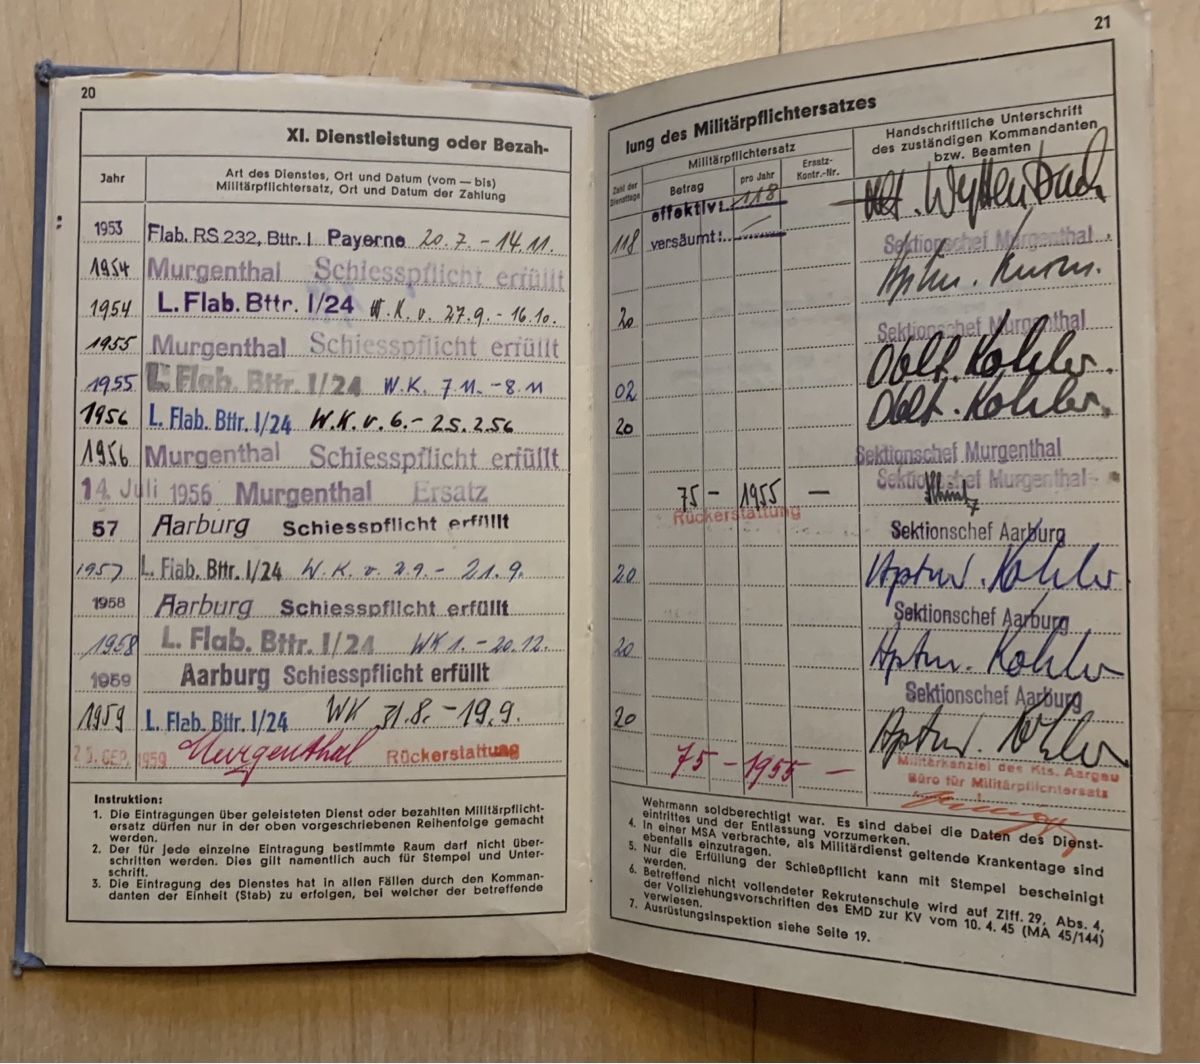 20
XI. Dienstleistung oder Bezah-
Jahr
Art des Dienstes, Ort und Datum (vom — bis)
Militärpflichtersatz, Ort und Datum der Zahlung
1953 Flab. RS 232, Bttr. I Payerne 20. 7. - 14. 11.
1954 Murgenthal Schiesspflicht erfüllt
1954 L. Flab. Bttr. I/24 W. K. v. 27.9. - 16.10.
1955 Murgenthal Schiesspflicht erfüllt
1955 L. Flab. Bttr. I/24 W.K. 7 11. - 8. 11
1956 L. Flab. Bttr. I/24 W.K. v. 6. - 25.2.56
1956 Murgenthal Schiesspflicht erfüllt
14. Juli 1956 Murgenthal Ersatz
57 Aarburg Schiesspflicht erfüllt
1957 L. Flab. Bttr. I/24 W. K. v. 2.9. - 21.9.
1958 Aarburg Schiesspflicht erfüllt
1958 L. Flab. Bttr. I/24 WK 1. - 20.12.
1959 Aarburg Schiesspflicht erfüllt
1959 L. Flab. Bttr. I/24 WK 31.8. - 19.9.
SEP. 1959 Murgenthal Rückerstattung
Instruktion:
1. Die Eintragungen über geleisteten Dienst oder bezahlten Militärpflicht-
ersatz dürfen nur in der oben vorgeschriebenen Reihenfolge gemacht
werden.
2. Der für jede einzelne Eintragung bestimmte Raum darf nicht über-
schritten werden. Dies gilt namentlich auch für Stempel und Unter-
schrift.
3. Die Eintragung des Dienstes hat in allen Fällen durch den Komman-
danten der Einheit (Stab) zu erfolgen, bei welcher der betreffende
21
lung des Militärpflichtersatzes
Zahl der
Diensttage
Militärpflichtersatz
Betrag
pro Jahr
Ersatz-
Kontr.-Nr.
Handschriftliche Unterschrift
des zuständigen Kommandanten
bzw. Beamten
effektiv: 118
118 versäumt: Wyttenbach
Sektionschef Murgenthal
20 Hptm.
Sektionschef Murgenthal
02 Oblt. Kohler
20 Oblt. Kohler
Sektionschef Murgenthal
75 - 1955 — Sektionschef Murgenthal
Rückerstattung
Sektionschef Aarburg
20 Hptm. Kohler
Sektionschef Aarburg
20 Hptm. Kohler
Sektionschef Aarburg
20 Hptm. Kohler
75 - 1955 — Militärkanzlei des Kts. Aargau
Büro für Militärpflichtersatz
Wehrmann soldberechtigt war. Es sind dabei die Daten des Dienst-
eintrittes und der Entlassung vorzumerken.
4. In einer MSA verbrachte, als Militärdienst geltende Krankentage sind
ebenfalls einzutragen.
5. Nur die Erfüllung der Schießpflicht kann mit Stempel bescheinigt
werden.
6. Betreffend nicht vollendeter Rekrutenschule wird auf Ziff. 29, Abs. 4,
der Vollziehungsvorschriften des EMD zur KV vom 10. 4. 45 (MA 45/144)
verwiesen.
7. Ausrüstungsinspektion siehe Seite 19.